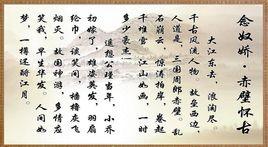 念奴娇·赤壁怀古
大江东去，浪淘尽。
千古风流人物，故垒西边，
人道是，三国周郎赤壁。乱
石崩云，惊涛拍岸，卷起
千堆雪，江山如画，一时
多少豪杰。
遥想公瑾当年，小乔
初嫁了，雄姿英发，羽扇
纶巾，谈笑间，樯橹灰飞
烟灭。故国神游，多情应
笑我，早生华发。人间如
梦，一樽还酹江月。